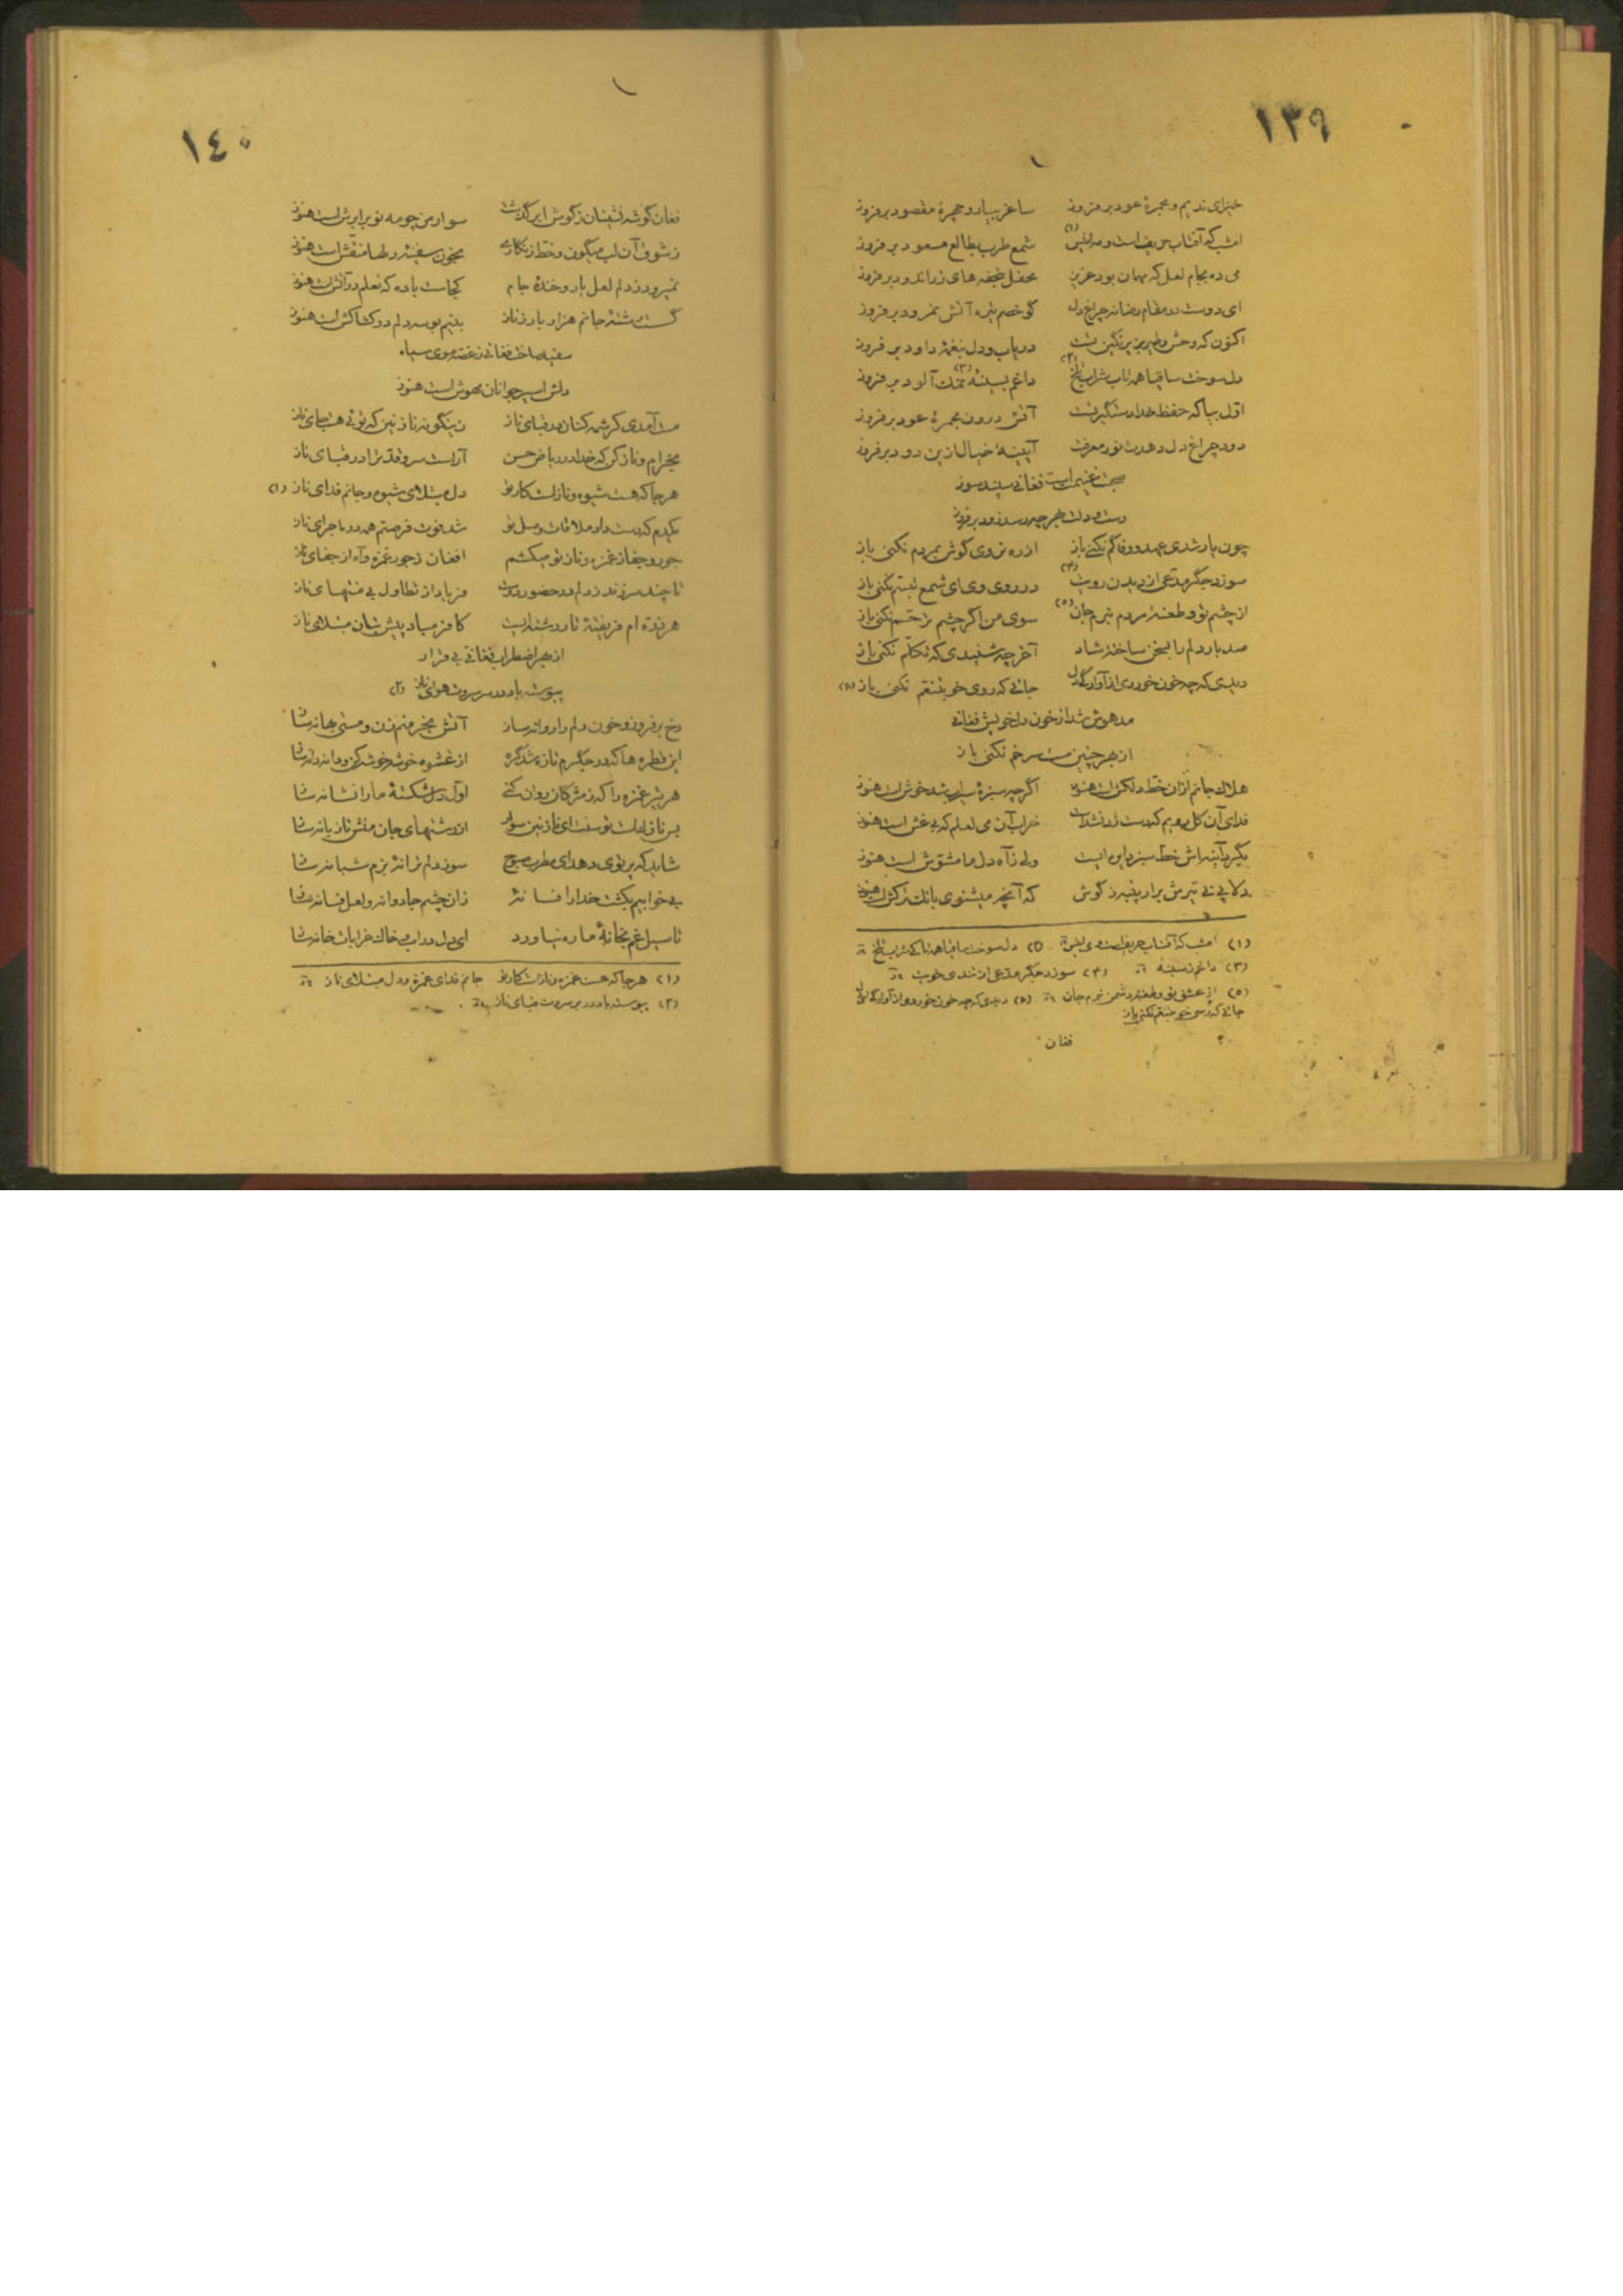 ١٣٩
خیز ای ندیم و مجمرهٔ عود برفروز ساغر بیار و حجرهٔ مقصود برفروز
امشب که آفتاب حریف است و مه انیس (١) شمع طرب بطالع مسعود برفروز
می ده بجام لعل که مهمان بود عزیز محفل بتحفه های زراندود برفروز
ای دوست در مقام رضا نه چراغ دل گو خصم تیره آتش نمرود برفروز
اکنون که وحش و طیر بزیر نگین تست دریاب و دل بنغمهٔ داود برفروز
دل سوخت ساقیا همه تاب شراب تلخ (٢) داغم بسینهٔ (٣) نمک آلود برفروز
اول بیا که حفظ خدا دستگیر تست آتش درون مجمرهٔ عود برفروز
دود چراغ دل دهدت نور معرفت آیینهٔ خیال ازین دود برفروز
صحبت غنیمت است فغانی سپند سوز
دست و دلت بهر چه رسد زود برفروز
چون یار شدی عهد و وفا گم نکنی باز از ره نروی گوش بمردم نکنی باز
سوزد جگر مدعی از دیدن رویت (٤) در روی وی ای شمع تبسم نکنی باز
از چشم تو و طعنهٔ مردم نبرم جان (٥) سوی من اگر چشم ترحم نکنی باز
صد بار دلم را بسخن ساخته شاد آخر چه شنیدی که تکلم نکنی باز
دیدی که چه خون خوردی از آوارگی دل جائی که روی خویشتنم نکنی باز (٥)
مدهوش شد از خون دل خویش فغانی
از بهر چنین مست سر خم نکنی باز
هلاک جانم از آن خط دلکش است هنوز اگرچه سبزهٔ سیراب شد خوش است هنوز
فدای آن گل رویم که دست زد نشدست خراب آن می لعلم که بی غش است هنوز
بگرد آینه اش خط سبز دایره ایست ولی ز آه دل ما مشوش است هنوز
دلا پی تیرش برار پنبه ز گوش که آنچه میشنوی بانک ترکش است هنوز
(١) امشب که آفتاب حریف است و می انیس (٢) دل سوخت ساقیا همه تا کی شراب تلخ
(٣) داغم ز سینهٔ (٤) سوزد جگر مدعی از تندی خویت
(٥) از عشق تو و طعنهٔ دشمن نبرم جان (٥) دیدی که چه خون خوردی از آوارگی ای دل
جائی که رسی خویشتنم نکنی باز
فغان
١٤٠
فغان گوشه نشینان ز گوش ابر گذشت سوار من چو مه نو بر ابرش است هنوز
ز شوق آن لب میگون و خط زنگاری بخون سفینهٔ دلها منقش است هنوز
نمیرود ز دلم لعل یار و خندهٔ جام کجاست باده که نعلم در آتش است هنوز
گسست رشتهٔ جانم هزار بار ز ناز بنیم بوسه دلم در کشاکش است هنوز
سفید ساخت فغانی ز غصه موی سیاه
دلش اسیر جوانان مهوش است هنوز
مست آمدی کرشمه کنان در قبای ناز زینگونه نازنین که توئی هست جای ناز
بخرام و ناز کن که خدا در ریاض حسن آراست سرو قد ترا در قبای ناز
هرجا که هست شیوه و نازست کار تو دل مبتلای شیوه و جانم فدای ناز (١)
یکدم که دست داد ملاقات وصل تو شد فوت فرصتم همه در ماجرای ناز
جور و جفا ز غمزه و ناز تو میکشم افغان ز جور غمزه و آه از جفای ناز
تا چند سرزند ز دلم در حضور دوست فریاد از تطاول بی منتهای ناز
هر ذره ام فریفتهٔ تار رشته ایست کافر مباد پیش بتان مبتلای ناز
از بهر اضطراب فغانی بی قرار
پیوسته باد در سر سروت هوای ناز (٢)
رخ برفروز و خون دلم را روانه ساز آتش بخرمنم زن و مستی بهانه ساز
این قطره ها که در جگرم تازه شد گره از عشوه خوشه خوشه کن و دانه دانه ساز
هر تیر غمزه را که ز مژگان روان کنی اول دل شکستهٔ ما را نشانه ساز
بس نازکست توسنت ای نازنین سوار از رشتهای جان منش تازیانه ساز
شاید که پرتوی دهد ای مطرب صبوح سوز دلم ترانهٔ بزم شبانه ساز
بی خوابیم بکشت خدا را فسانهٔ زان چشم جادوانه و لعل فسانه ساز
تا سیل غم بخانهٔ ما ره نیاورد ای دل در آب و خاک خرابات خانه ساز
(١) هرجا که هست غمزه و نازست کار تو جانم فدای غمزه و دل مبتلای ناز
(٢) پیوسته باد در بر سروت قبای ناز